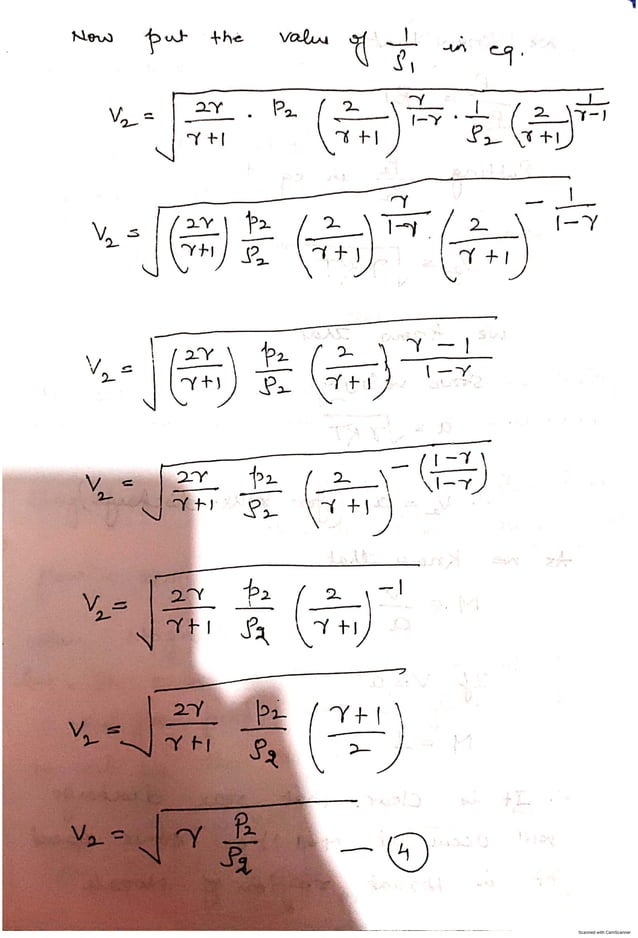 Now put the value of 1/ρ₁ in eq.
V₂ = √(2γ/(γ+1) · p₂ (2/(γ+1))^(γ/(1-γ)) · 1/ρ₂ (2/(γ+1))^(1/(γ-1)))
V₂ = √((2γ/(γ+1)) p₂/ρ₂ (2/(γ+1))^(γ/(1-γ)) · (2/(γ+1))^(-1/(1-γ)))
V₂ = √((2γ/(γ+1)) p₂/ρ₂ (2/(γ+1))^((γ-1)/(1-γ)))
V₂ = √(2γ/(γ+1) p₂/ρ₂ (2/(γ+1))^(-((1-γ)/(1-γ))))
V₂ = √(2γ/(γ+1) p₂/ρ₂ (2/(γ+1))^(-1))
V₂ = √(2γ/(γ+1) p₂/ρ₂ ((γ+1)/2))
V₂ = √(γ P₂/ρ₂) — ④
Scanned with CamScanner